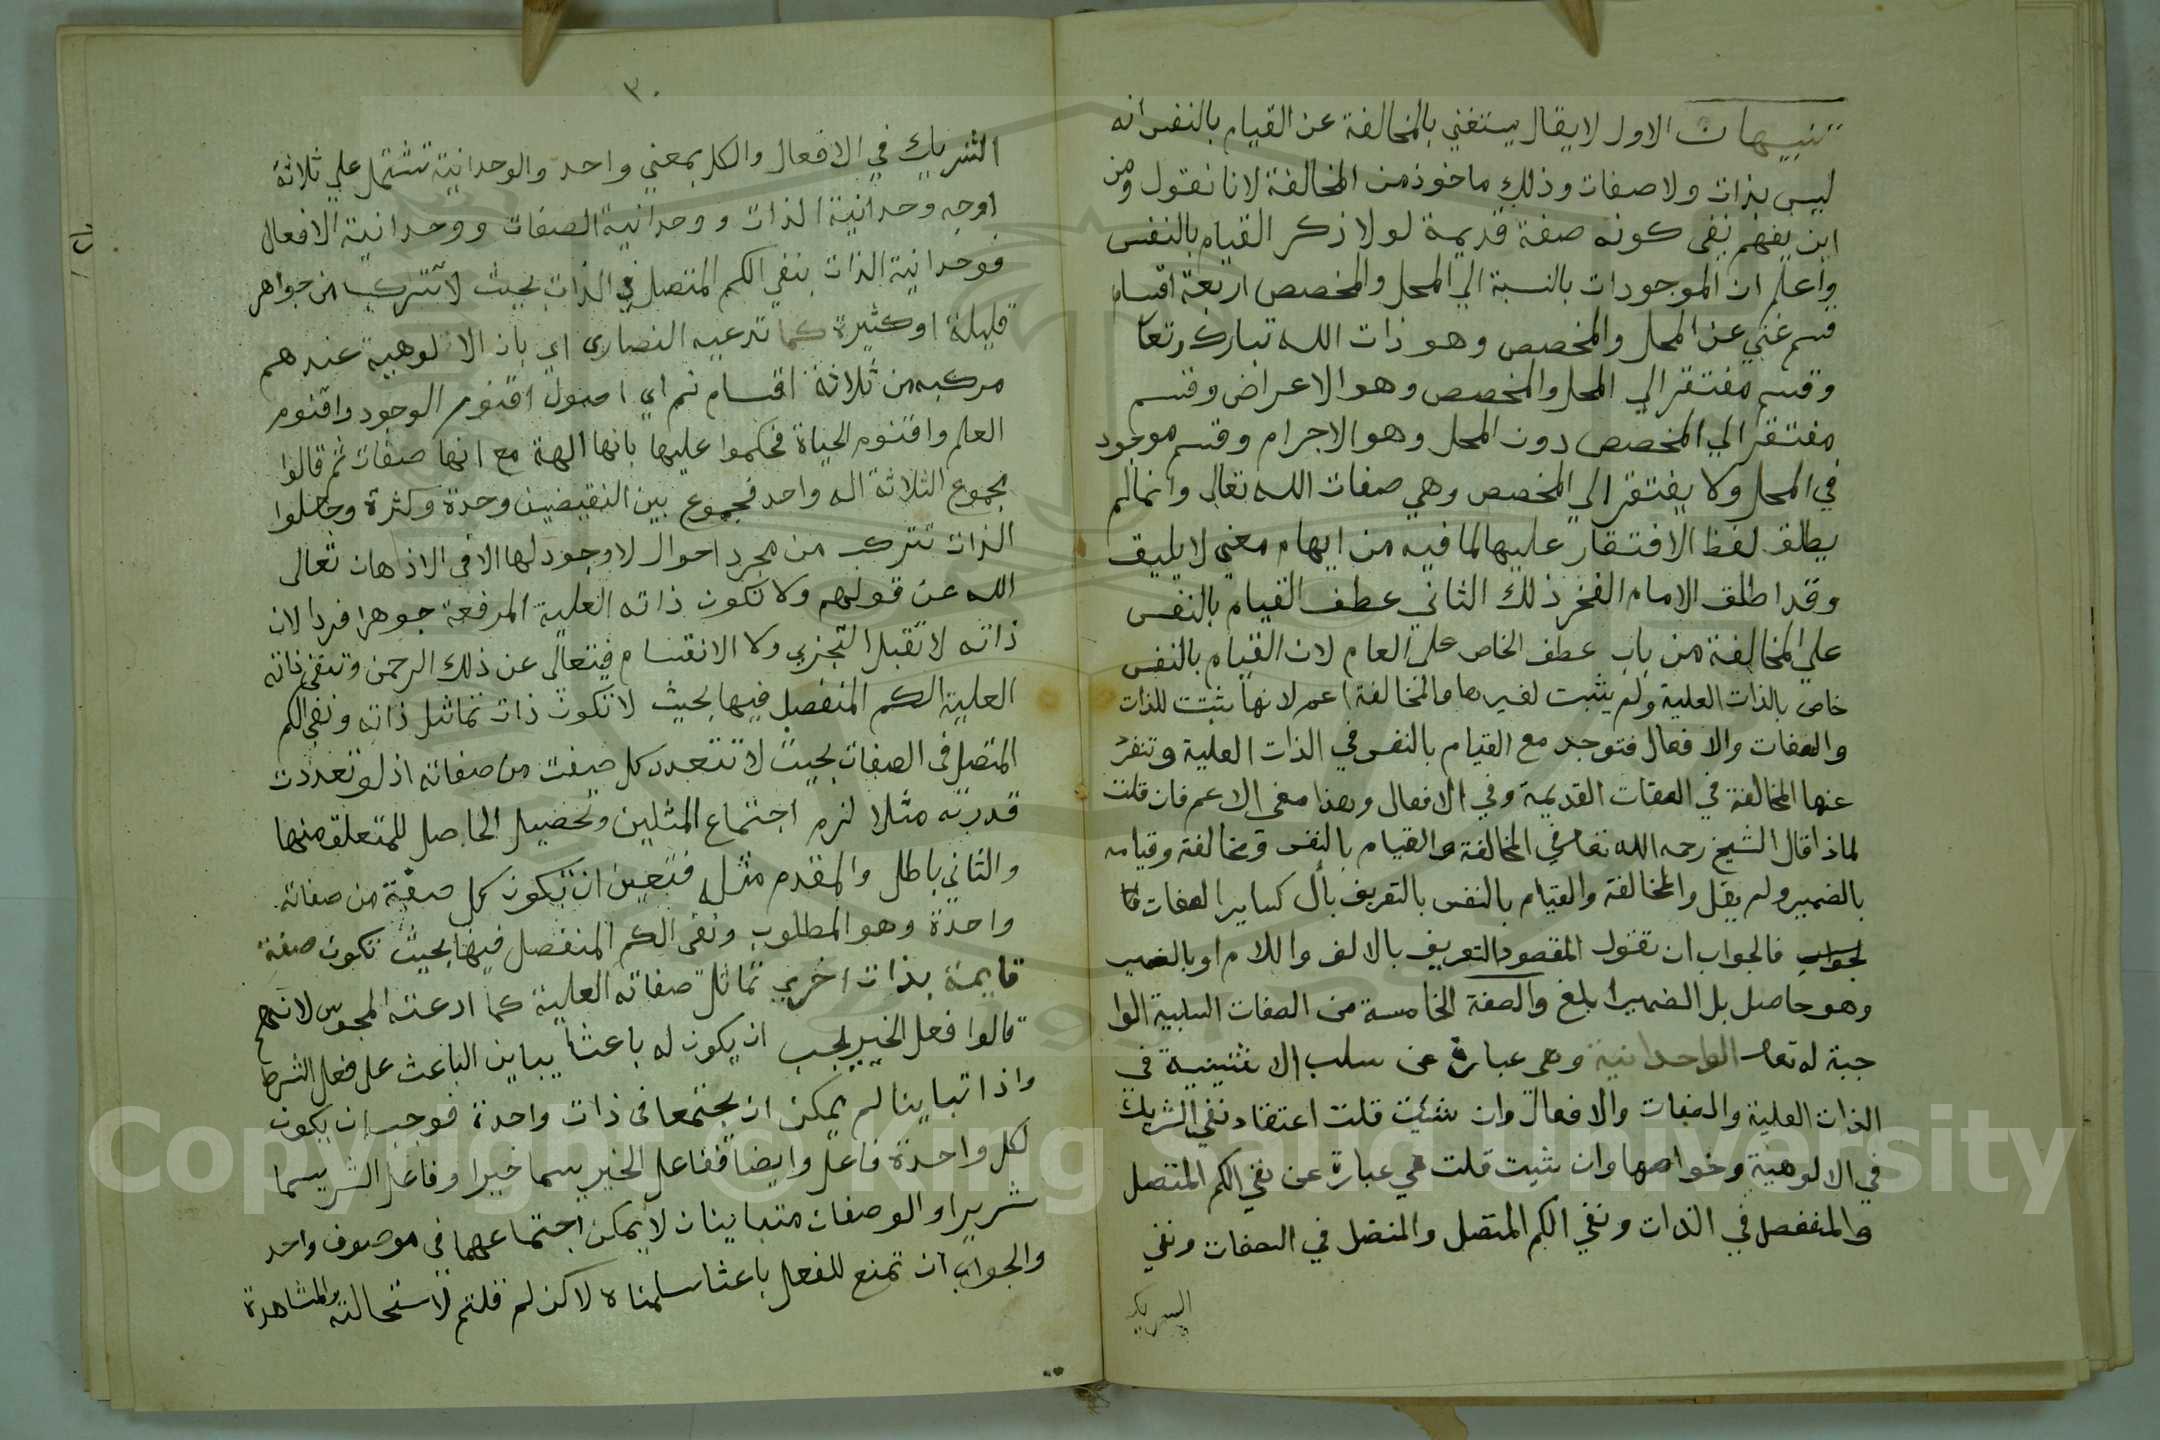 تنبيهات الاول لا يقال يستغني بالمخالفة عن القيام بالنفس انه
ليس بذات ولا صفات وذلك ماخوذ من المخالفة لانا نقول ومن
اين يفهم نفي كونه صفة قديمة لولا ذكر القيام بالنفس
واعلم ان الموجودات بالنسبة الي المحل والمخصص اربعة اقسام
قسم غني عن المحل والمخصص وهو ذات الله تبارك وتعا
وقسم مفتقر الي المحل والمخصص وهو الاعراض وقسم
مفتقر الي المخصص دون المحل وهو الاجرام وقسم موجود
في المحل ولا يفتقر الي المخصص وهي صفات الله تعالى وانما لم
يطلق لفظ الافتقار عليها لما فيه من ايهام معني لا يليق
وقد اطلق الامام الفخر ذلك الثاني عطف القيام بالنفس
علي المخالفة من باب عطف الخاص على العام لان القيام بالنفس
خاص بالذات العلية ولم يثبت لغيرها والمخالفة اعم لانها تثبت للذات
والصفات والافعال فتوجد مع القيام بالنفس في الذات العلية وتنفرد
عنها المخالفة في الصفات القديمة وفي الافعال وهذا معنى الاعم فان قلت
لماذا قال الشيخ رحمه الله تعالى في المخالفة والقيام بالنفس ومخالفة وقيامه
بالضمير ولم يقل والمخالفة والقيام بالنفس بالتعريف بأل كساير الصفات فا
لجواب فالجواب ان تقول المقصود التعريف بالالف واللام او بالضمير
وهو حاصل بل الضمير ابلغ والصفة الخامسة من الصفات السلبية الوا
جبة له تعا الواحدانية وهي عبارة عن سلب الاثنينية في
الذات العلية والصفات والافعال وان شئت قلت اعتقاد نفي الشريك
في الالوهية وخواصها وان شيت قلت هي عبارة عن نفي الكم المتصل
والمنفصل في الذات ونفي الكم المتصل والمنفصل في الصفات ونفي
الشريك
٣٠
الشريك في الافعال والكل بمعني واحد والوحدانية تشتمل علي ثلاثة
اوجه وحدانية الذات ووحدانية الصفات ووحدانية الافعال
فوحدانية الذات بنفي الكم المتصل في الذات بحيث لا تتركب من جواهر
قليلة او كثيرة كما تدعيه النصارى اي بان الالوهية عندهم
مركبه من ثلاثة اقسام نم اي اصول اقنوم الوجود واقنوم
العلم واقنوم الحياة فحكموا عليها بانها الهة مع انها صفات ثم قالوا
مجموع الثلاثة اله واحد فجموع بين النقيضين وحدة وكثرة وجعلوا
الذات تتركب من مجرد احوال لا وجود لها الا في الاذهان تعالى
الله عن قولهم ولا تكون ذاته العلية المرفعة جوهرا فردا لان
ذاته لا تقبل التجزي ولا الانقسام فيتعالى عن ذلك الرحمن وتنفي ذاته
العلية الكم المنفصل فيها بحيث لا تكون ذات تماثل ذاته ونفي الكم
المتصل في الصفات بحيث لا تتعدد كل صيفت من صفاته اذ لو تعددت
قدرته مثلا لزم اجتماع المثلين وتحصيل الحاصل للمتعلق منها
والثاني باطل والمقدم مثله فتعين ان تكون كل صفة من صفاته
واحدة وهو المطلوب ونفي الكم المنفصل فيها بحيث تكون صفة
قايمة بذات اخري تماثل صفاته العلية كما ادعته المجوس لانهم
قالوا فعل الخير يجب ان يكون له باعثا يباين الباعث على فعل الشر
واذا تباينا لم يمكن ان يجتمعا في ذات واحدة فوجب ان يكون
لكل واحدة فاعل وايضا ففاعل الخير يسما خيرا وفاعل الشر يسما
شريرا والوصفان متباينان لا يمكن اجتماعهما في موصوف واحد
والجواب ان تمنع للفعل باعثا سلمناه لاكن لم قلتم لاستحالته والمشاهدة
Copyright © King Saud University